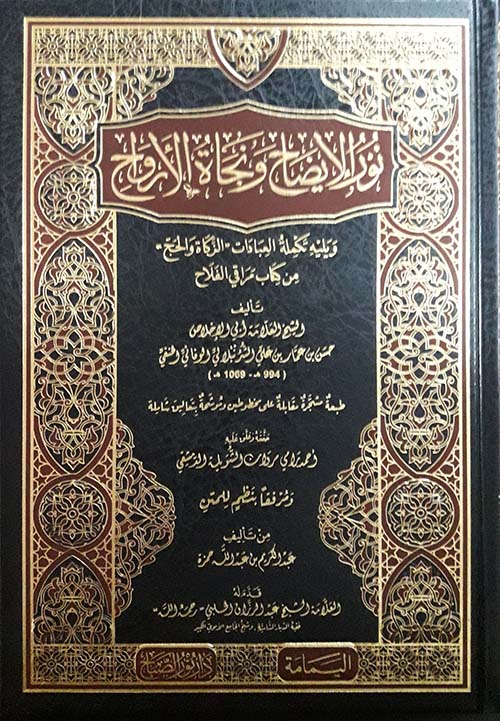 نور الإيضاح ونجاة الأرواح
ويليه تكملة العبادات "الزكاة والحج"
من كتاب مراقي الفلاح
تأليف
الشيخ العلامة أبي الإخلاص
حسن بن عمار بن علي الشرنبلالي الوفائي الحنفي
(994 هـ - 1069 هـ)
طبعة متميزة مقابلة على مخطوطين وموشحة بتعاليق شاملة
حققه وعلق عليه
أحمد رامي الشويكي الدمشقي
ومرفقا بنظم للمتن
من تأليف
عبد الكريم بن عبد الله حمزة
قدم له
العلامة الشيخ عبد الرزاق الحلبي "رحمه الله"
فقيه الديار الشامية، وشيخ الجامع الأموي الكبير
اليمامة
دار نور الصباح